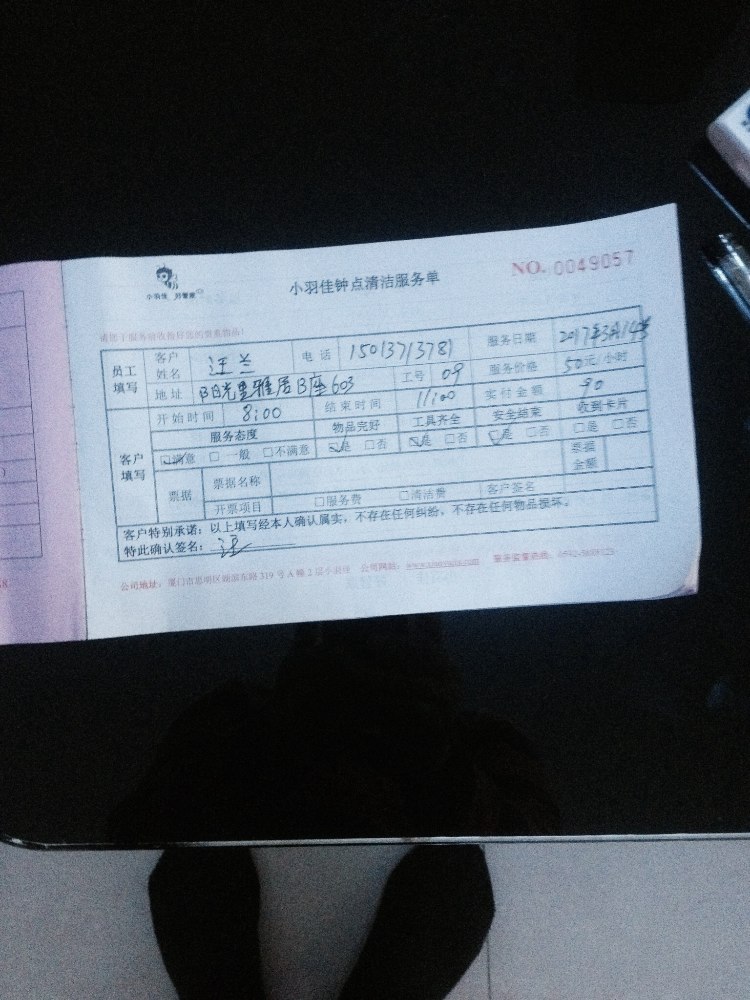 小羽佳 好管家
小羽佳钟点清洁服务单
NO. 0049057
员工填写
客户姓名 汪兰 电话 15013713781 服务日期 2017年3月14号
地址 阳光里雅居B座603 工号 09 服务价格 50元/小时
客户填写
开始时间 8:00 结束时间 11:00 实付金额 90
服务态度 物品完好 工具齐全 安全结束 收到卡片
☑满意 □一般 □不满意 ☑是 □否 ☑是 □否 ☑是 □否 □是 □否
票据 票据名称 票据金额
开票项目 □服务费 □清洁费 客户签名
客户特别承诺：以上填写经本人确认属实，不存在任何纠纷，不存在任何物品损坏。
特此确认签名： 汪
公司地址：厦门市思明区 319号A幢2层 公司网站： 服务监督热线：